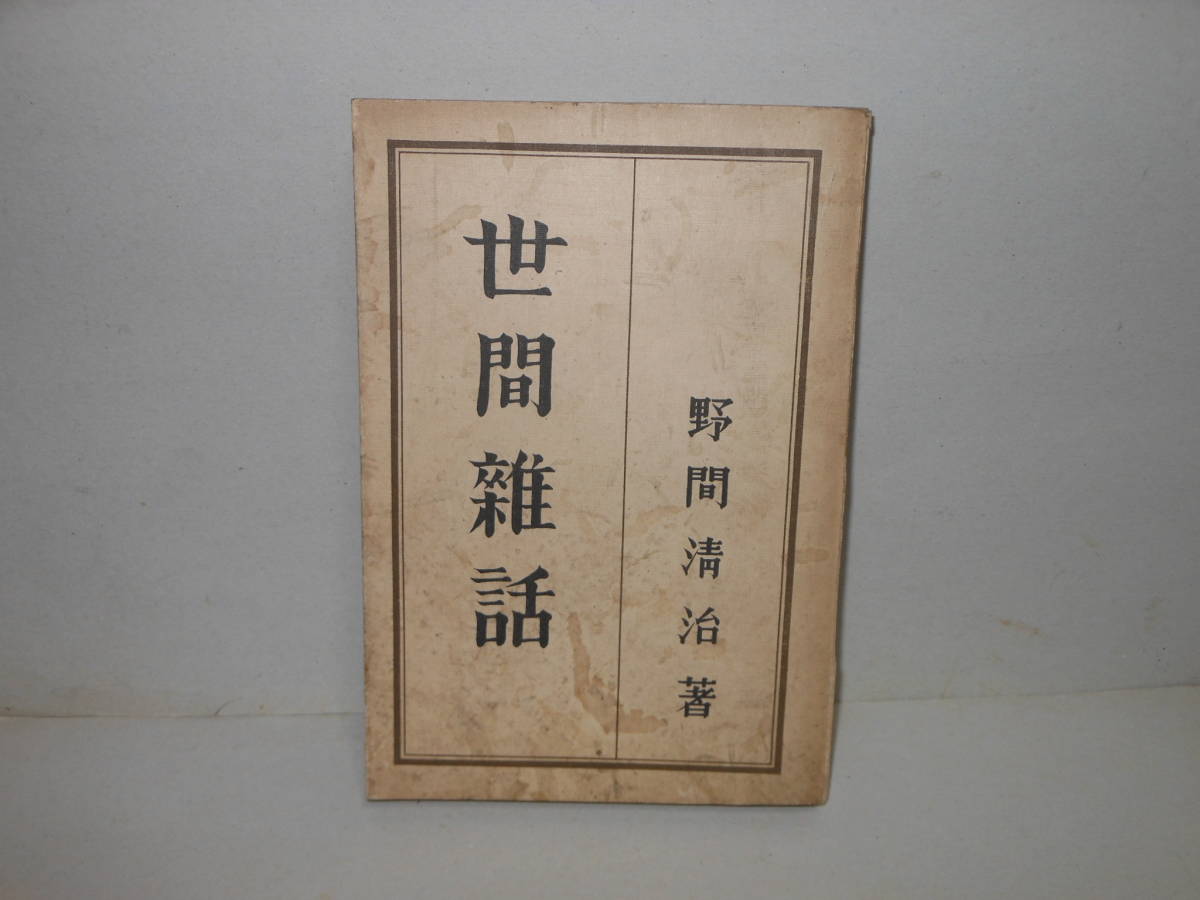 野間清治著
世間雜話